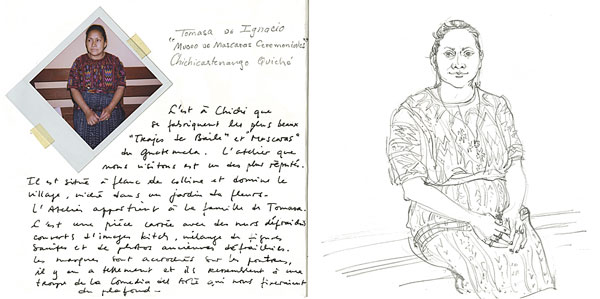 Tomasa de Ignacio
"Museo de Mascaras Ceremoniales"
Chichicastenango Quiché
C'est à Chichi que
se fabriquent les plus beaux
"Trajes de Baile" et "Mascaras"
du Guatemala. L'atelier que
nous visitons est un des plus réputés.
Il est situé à flanc de colline et domine le
village, niché dans un jardin de fleurs.
L'Atelier appartient à la famille de Tomasa.
C'est une pièce carrée avec des murs défraichis
couverts d'images kitch, mélange de figures
Saintes et de photos anciennes défraîchies.
Les masques sont accrochés sur les poutres,
il y en a tellement et ils ressemblent à une
troupe de la Comedia del Arte qui nous fixeraient
du plafond.